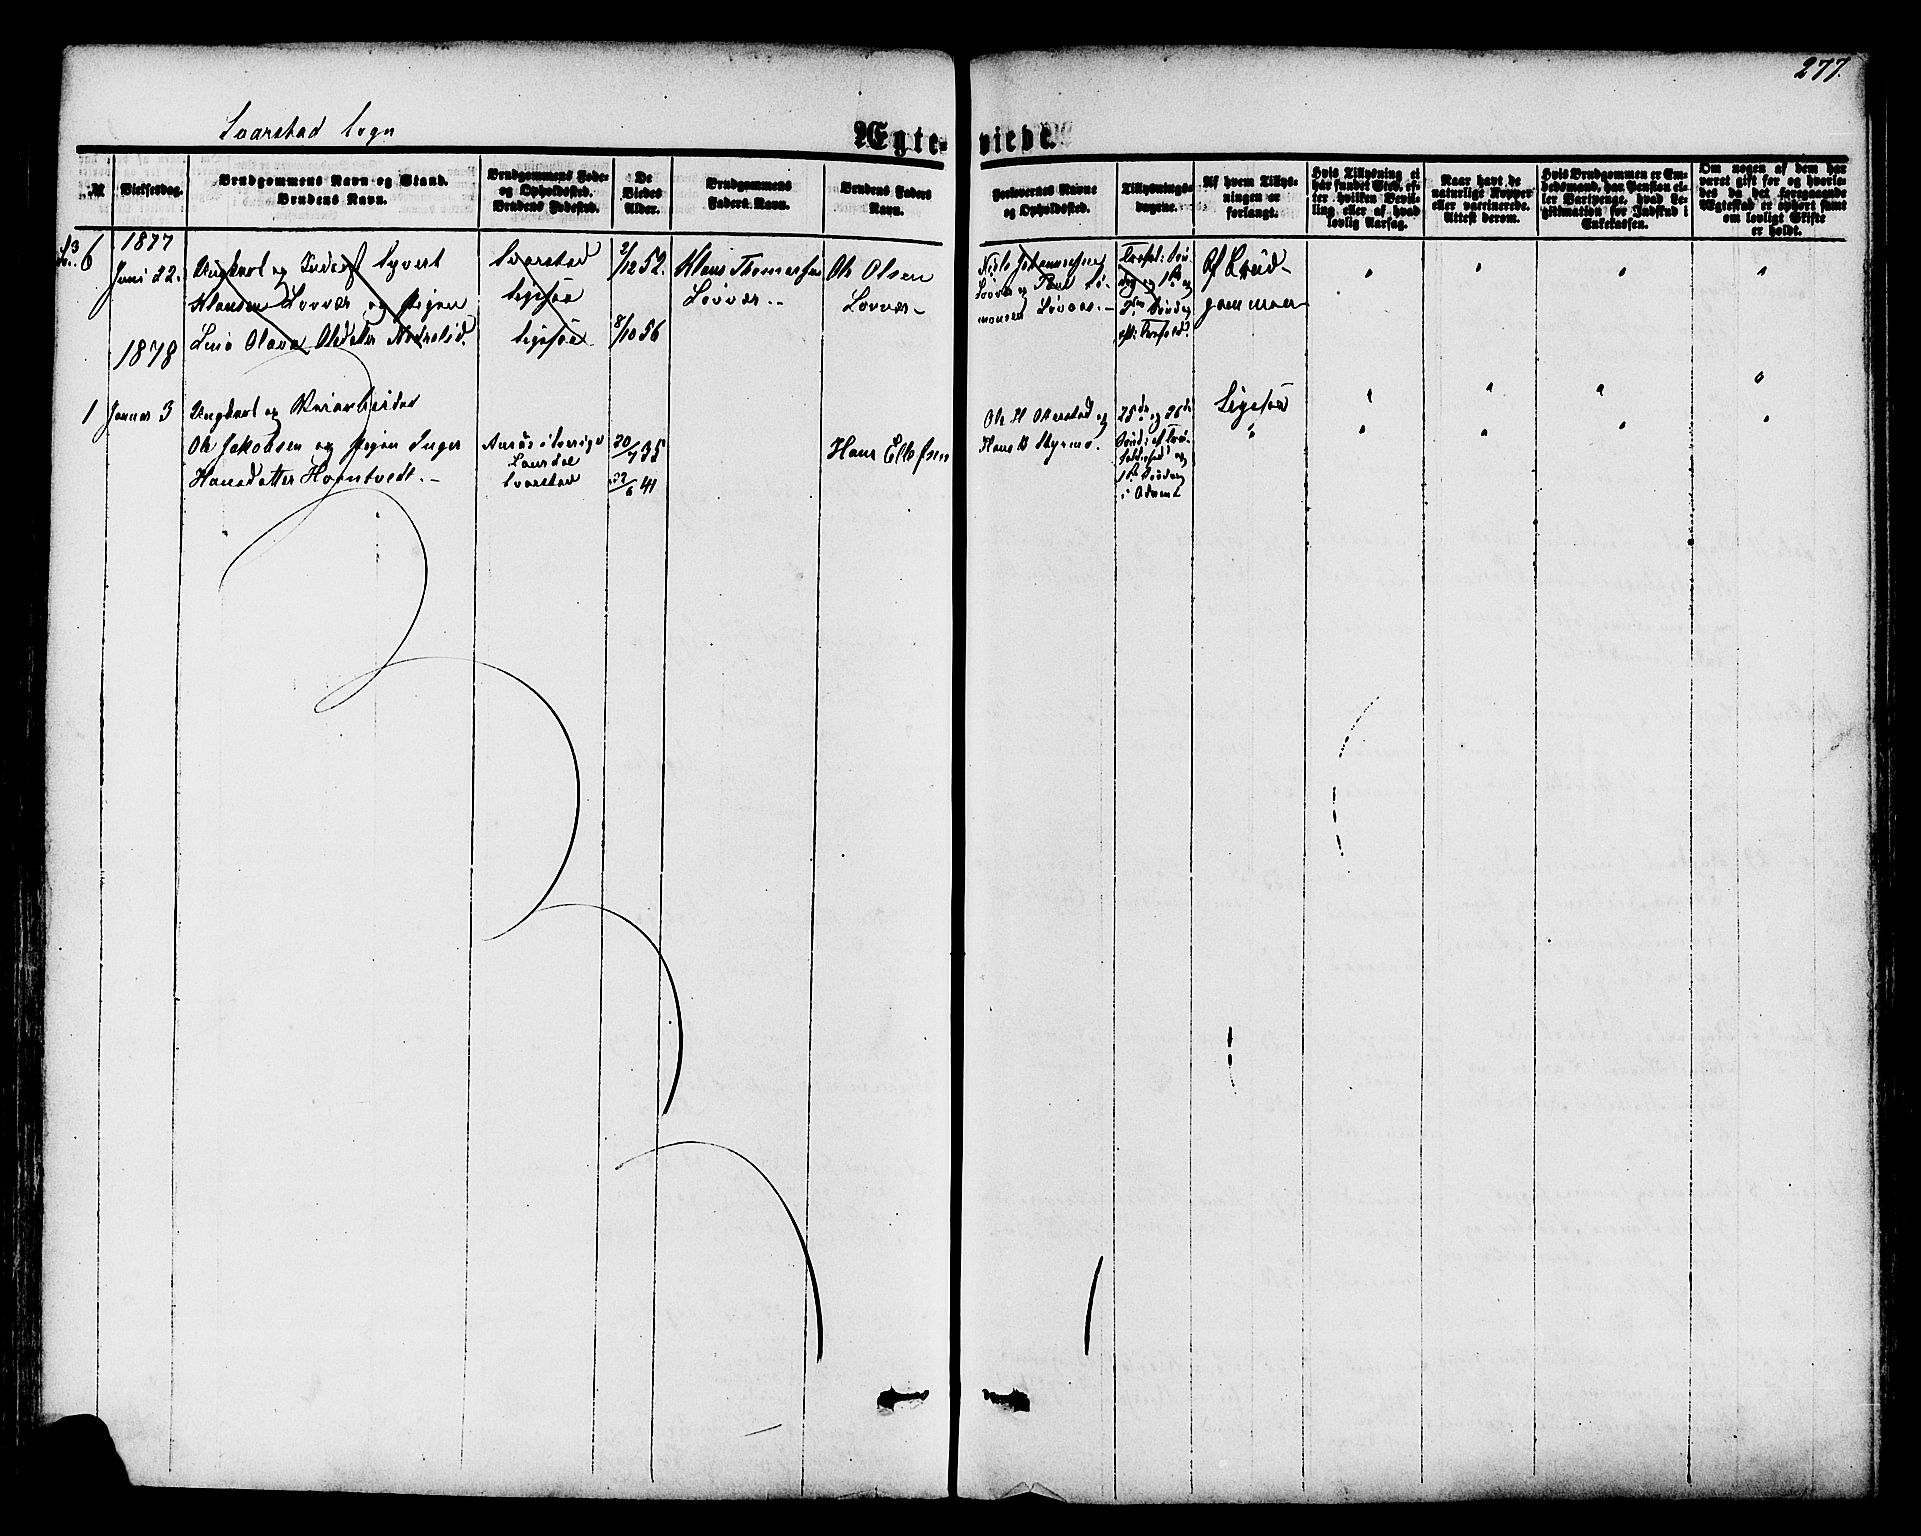 277.
Svarstad Sogn
Ægte-viede.
No
Vielsesdag.
Brudgommens Navn og Stand.
Brudens Navn.
Brudgommens Føde-
og Opholdssted.
Brudens Fødested.
De
Viedes
Alder.
Brudgommens
Faders Navn.
Brudens Faders
Navn.
Forlovernes Navne
og Opholdssted.
Tillysnings-
dagene.
Af hvem Tillys-
ningen er
forlangt.
Hvis Tillysning ei
har fundet Sted, ef-
ter hvilken Bevil-
ling eller af hvad
lovlig Aarsag.
Naar havt de
naturlige Kopper
eller vaccinerede.
Attest derom.
Hvis Brudgommen er Em-
bedsmand, har Pension el-
ler Vartpenge, hvad Le-
gitimation for Indskud i
Enkekassen.
Om nogen af dem har
været gift før og hvorle-
des da det foregaaende
Ægteskab er ophørt samt
om lovligt Skifte
er holdt.
1877
6
Juni 22.
Ungkarl og Inderst Syvert
Klausen Lovvær og Pigen
Lina Olava Olsdatter
Svarstad
ligesaa
ligesaa
2/12 52.
8/10 56
Klaus Thomassen
Lovvær
Ole Olsen
Lovvær
Niels Johannesen
Af Brud-
gommen
1878
1
Januar 3
Ungkarl og Veiarbeider
Ole Jakobsen og Pigen Inger
Hansdatter Horntvedt.
i Sverige
Laurdal
Svarstad
20/7 35
22/6 41
Hans Ellefsen
Hans
25de og 26de
Sønd: af Tre-
foldighed og
1ste Søndag
i Advent
Ligesaa